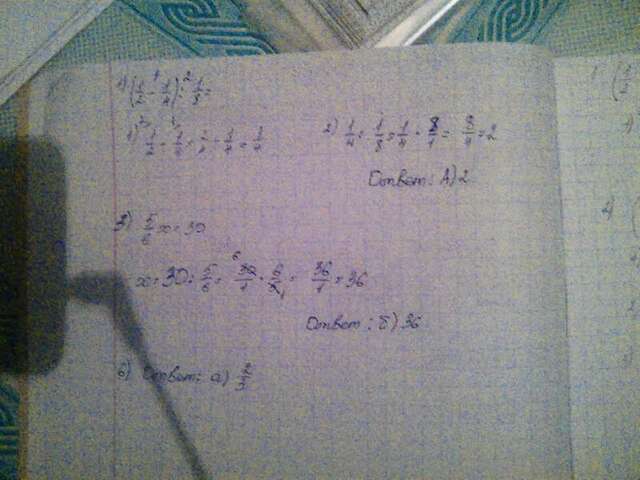 1) (1/2 - 1/4) : 1/8 =
1) 1/2 - 1/4 = 2/4 - 1/4 = 1/4
2) 1/4 : 1/8 = 1/4 · 8/1 = 8/4 = 2
Ответ: А) 2
3) 5/6 x = 30
x = 30 : 5/6 = 30/1 · 6/5 = 36/1 = 36
Ответ: б) 36
6) Ответ: а)